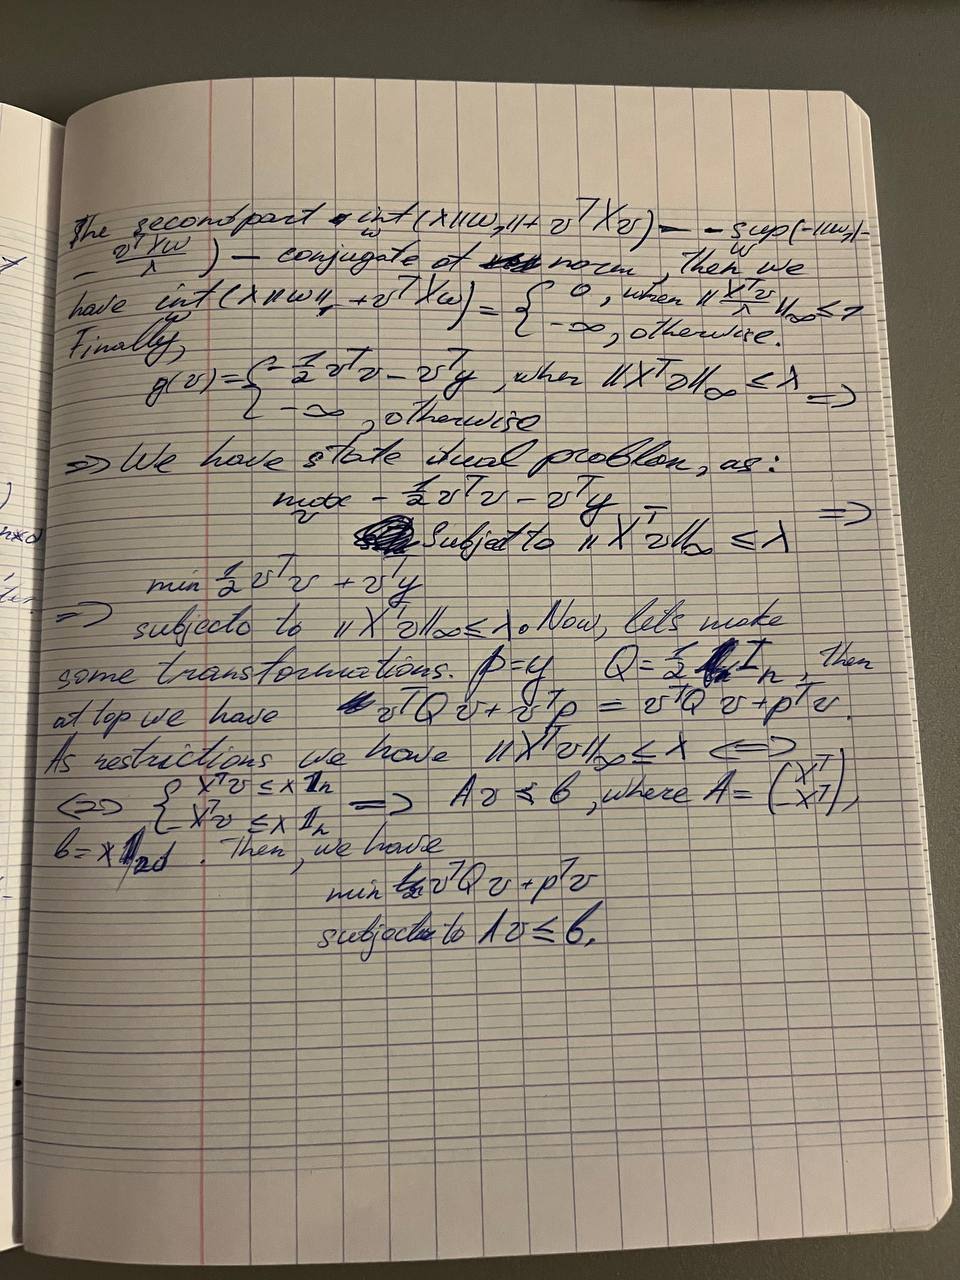 The second part inf_w (λ||w||_1 + v^T X v) = - sup_w (-||w||_1 -
- v^T X w / λ ) — conjugate of norm, then we
have inf_w (λ||w||_1 + v^T X w) = { 0, when || X^T v / λ ||_∞ ≤ 1
-∞, otherwise.
Finally,
g(v) = { -1/2 v^T v - v^T y, when ||X^T v||_∞ ≤ λ =>
-∞, otherwise
=> We have state dual problem, as:
max_v - 1/2 v^T v - v^T y =>
Subject to ||X^T v||_∞ ≤ λ
=> min 1/2 v^T v + v^T y
subjecto to ||X^T v||_∞ ≤ λ. Now, lets make
some transformations. p = y Q = 1/2 I_n, then
at top we have v^T Q v + v^T p = v^T Q v + p^T v.
As restrictions we have ||X^T v||_∞ ≤ λ <=>
<=> { X^T v ≤ λ 1_n
-X^T v ≤ λ 1_n => A v ≤ b, where A = (X^T -X^T),
b = λ 1_2d. Then, we have
min v^T Q v + p^T v
subject to A v ≤ b.